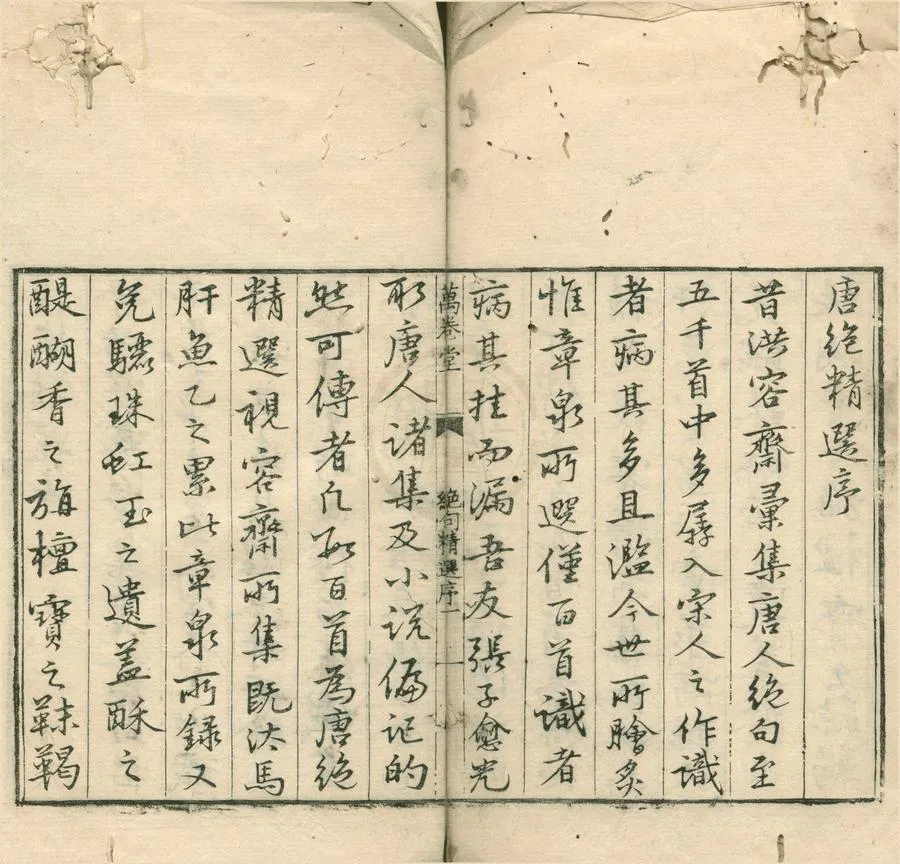 唐絶精選序
昔洪容齋彙集唐人絶句至
五千首中多孱入宋人之作識
者病其多且濫今世所膾炙
惟章泉所選僅百首識者
病其挂而漏吾友張子愈光
萬卷堂 絶句精選序 一
取唐人諸集及小説偏記的
然可傳者凡數百首為唐絶
精選視容齋所集既汰馬
肝魚乙之累比章泉所録又
免驪珠虹玉之遺蓋酥之
醍醐香之旃檀寶之靺鞨